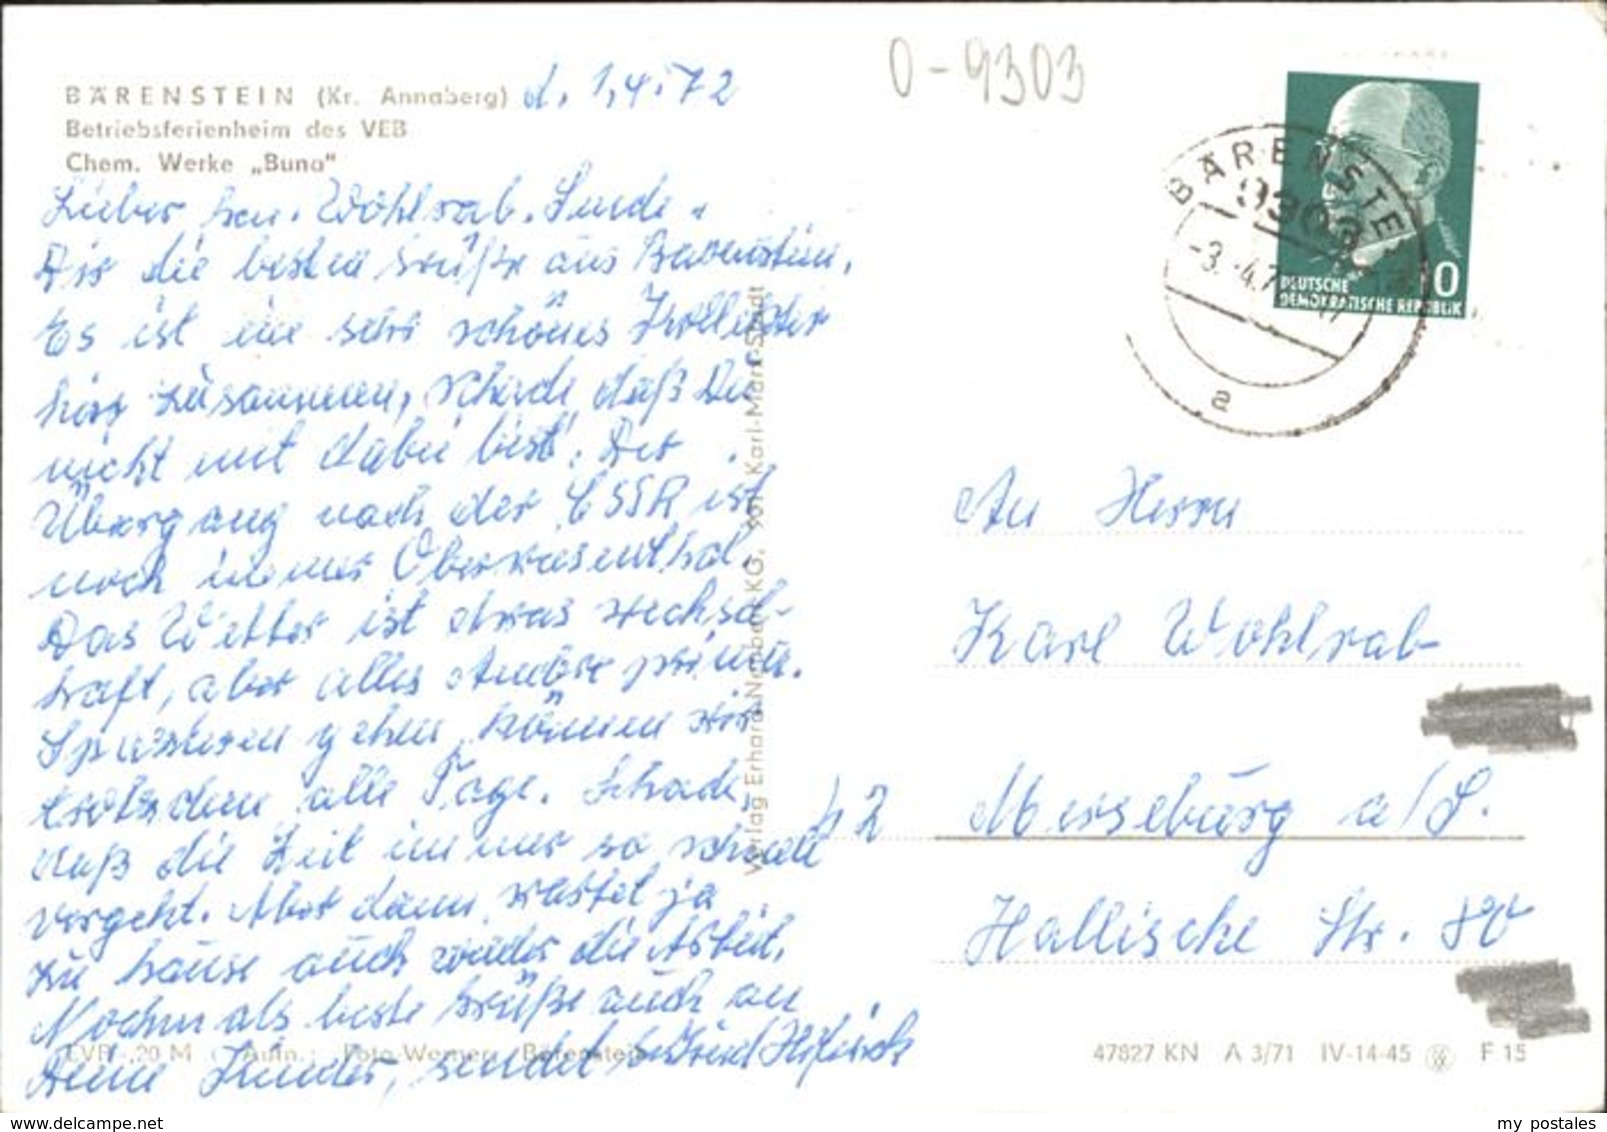 BÄRENSTEIN (Kr. Annaberg) d. 1.4.72
Betriebsferienheim des VEB
Chem. Werke „Buna“
Lieber Wohlrab. Sende
Dir die besten Grüße aus Bärenstein.
Es ist ein sehr schönes
hier zusammen, schade daß Du
nicht mit dabei bist. Der
Übergang nach der ČSSR ist
noch immer Oberwiesenthal.
Das Wetter ist etwas wechsel-
haft, aber alles Andere prima.
Spazieren gehen können wir
trotzdem alle Tage. Schade,
daß die Zeit immer so schnell
vergeht. Aber dann wartet ja
zu hause auch wieder die Arbeit.
Nochmals beste Grüße auch an
Deine Kinder, sendet
EVP -,20 M Aufn.: Foto-Werner, Bärenstein
Verlag Erhard Neubert KG, 901 Karl-Marx-Stadt
0-9303
BÄRENSTE
9303
-3.-4.7
a
DEUTSCHE
DEMOKRATISCHE REPUBLIK
An Herrn
Karl Wohlrab
42 Merseburg a/S.
Hallische Str. 80
47827 KN A 3/71 IV-14-45 F 15
delcampe.net
my postales